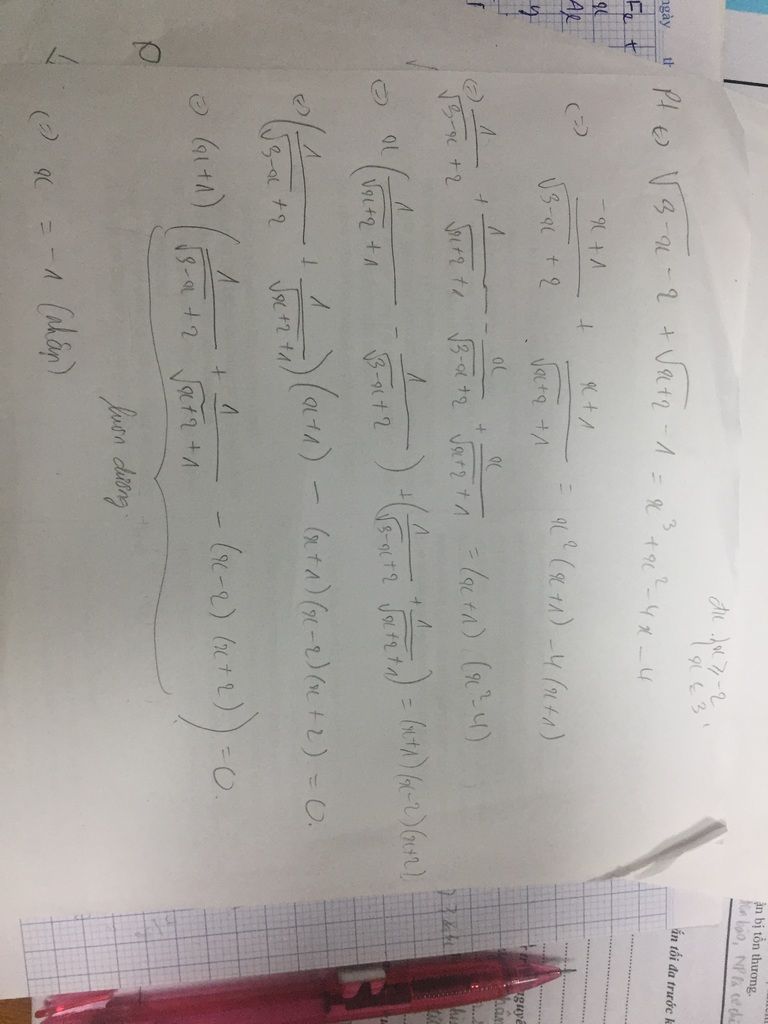 đk { x ≥ -2
x ≤ 3
Pt ⇔ √(3-x) - 2 + √(x+2) - 1 = x³ + x² - 4x - 4
(=) (-x+1)/(√(3-x) + 2) + (x+1)/(√(x+2) + 1) = x²(x+1) - 4(x+1)
(=) 1/(√(3-x) + 2) + 1/(√(x+2) + 1) - x/(√(3-x) + 2) + x/(√(x+2) + 1) = (x+1).(x²-4)
(=) x(1/(√(x+2) + 1) - 1/(√(3-x) + 2)) + (1/(√(3-x) + 2) + 1/(√(x+2) + 1)) = (x+1)(x-2)(x+2)
(=) (1/(√(3-x) + 2) + 1/(√(x+2) + 1))(x+1) - (x+1)(x-2)(x+2) = 0.
(=) (x+1)(1/(√(3-x) + 2) + 1/(√(x+2) + 1) - (x-2)(x+2)) = 0.
luôn dương
(=) x = -1 (nhận)
ngày
ận bị tổn thương.
ấn tối đa trước k
nguyê